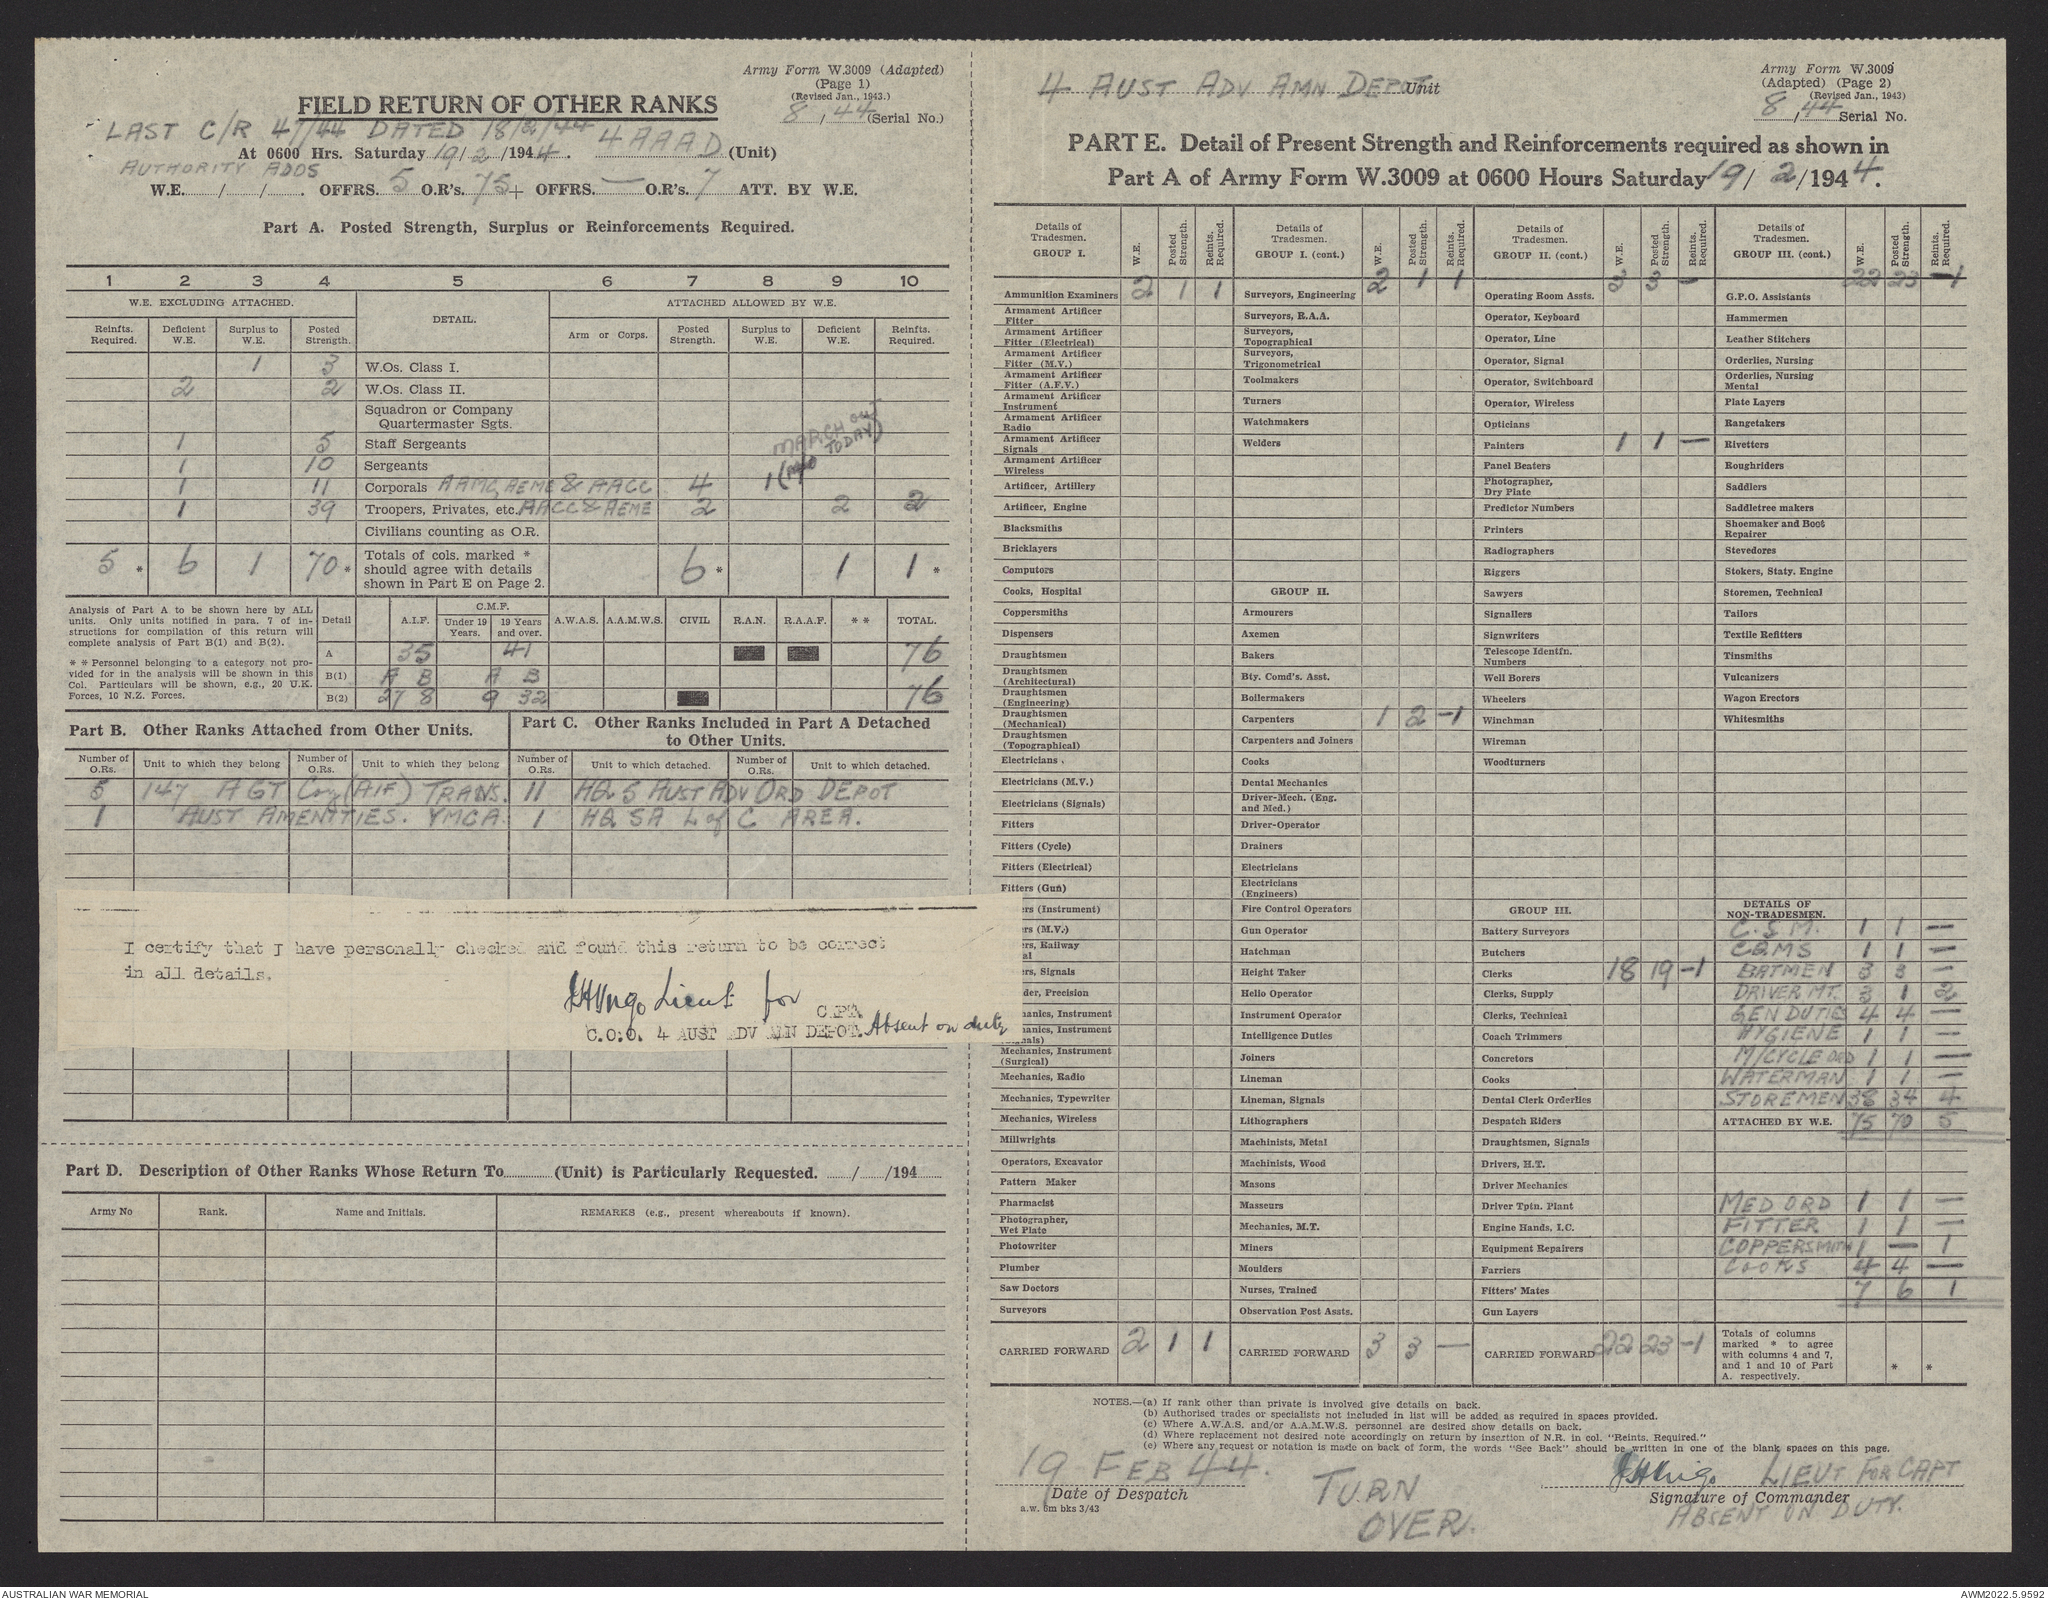 Army Form W.3009 (Adapted)
(Page 1)
(Revised Jan., 1943.)
8 / 44 (Serial No.)
FIELD RETURN OF OTHER RANKS
LAST C/R 47/44 DATED 18/2/44
At 0600 Hrs. Saturday 19/2/1944. 4 AAAD (Unit)
AUTHORITY ADOS
W.E. / / . OFFRS. 5 O.R's. 75 + OFFRS. — O.R's. 7 ATT. BY W.E.
Part A. Posted Strength, Surplus or Reinforcements Required.
1 2 3 4 5 6 7 8 9 10
W.E. EXCLUDING ATTACHED. DETAIL. ATTACHED ALLOWED BY W.E.
Reinfts. Required. Deficient W.E. Surplus to W.E. Posted Strength. Arm or Corps. Posted Strength. Surplus to W.E. Deficient W.E. Reinfts. Required.
1 3 W.Os. Class I.
2 2 W.Os. Class II.
Squadron or Company
Quartermaster Sgts.
1 5 Staff Sergeants
MARCH OUT
TODAY)
1 10 Sergeants
1 11 Corporals AAMC, AEME & AACC 4 1
1 39 Troopers, Privates, etc. AACC & AEME 2 2 2
Civilians counting as O.R.
5 * 6 1 70 * Totals of cols. marked * should agree with details shown in Part E on Page 2. 6 * 1 1 *
Analysis of Part A to be shown here by ALL
units. Only units notified in para. 7 of in-
structions for compilation of this return will
complete analysis of Part B(1) and B(2).
* * Personnel belonging to a category not pro-
vided for in the analysis will be shown in this
Col. Particulars will be shown, e.g., 20 U.K.
Forces, 10 N.Z. Forces.
Detail A.I.F. C.M.F. Under 19 Years. 19 Years and over. A.W.A.S. A.A.M.W.S. CIVIL R.A.N. R.A.A.F. * * TOTAL.
A 35 41 76
B(1) A B A B
B(2) 27 8 9 32 76
Part B. Other Ranks Attached from Other Units.
Part C. Other Ranks Included in Part A Detached
to Other Units.
Number of O.Rs. Unit to which they belong Number of O.Rs. Unit to which they belong Number of O.Rs. Unit to which detached. Number of O.Rs. Unit to which detached.
5 147 AGT Coy (AIF) TRANS. 11 HQ 5 AUST ADV ORD DEPOT
1 AUST AMENITIES. YMCA. 1 HQ SA L of C AREA.
I certify that I have personally checked and found this return to be correct
in all details.
Lieut for CAPT.
C.O.O. 4 AUST ADV AMN DEPOT. Absent on duty
Part D. Description of Other Ranks Whose Return To (Unit) is Particularly Requested. / /194
Army No Rank. Name and Initials. REMARKS (e.g., present whereabouts if known).
Army Form W.3009
(Adapted) (Page 2)
(Revised Jan., 1943)
8 / 44 Serial No.
4 AUST ADV AMN DEPOT Unit
PART E. Detail of Present Strength and Reinforcements required as shown in
Part A of Army Form W.3009 at 0600 Hours Saturday 19/2/1944.
Details of Tradesmen. GROUP I. W.E. Posted Strength. Reints. Required.
Ammunition Examiners 2 1 1
Armament Artificer Fitter
Armament Artificer Fitter (Electrical)
Armament Artificer Fitter (M.V.)
Armament Artificer Fitter (A.F.V.)
Armament Artificer Instrument
Armament Artificer Radio
Armament Artificer Signals
Armament Artificer Wireless
Artificer, Artillery
Artificer, Engine
Blacksmiths
Bricklayers
Computors
Cooks, Hospital
Coppersmiths
Dispensers
Draughtsmen
Draughtsmen (Architectural)
Draughtsmen (Engineering)
Draughtsmen (Mechanical)
Draughtsmen (Topographical)
Electricians
Electricians (M.V.)
Electricians (Signals)
Fitters
Fitters (Cycle)
Fitters (Electrical)
Fitters (Gun)
rs (Instrument)
rs (M.V.)
rs, Railway
rs, Signals
der, Precision
hanics, Instrument
hanics, Instrument
Mechanics, Instrument (Surgical)
Mechanics, Radio
Mechanics, Typewriter
Mechanics, Wireless
Millwrights
Operators, Excavator
Pattern Maker
Pharmacist
Photographer, Wet Plate
Photowriter
Plumber
Saw Doctors
Surveyors
CARRIED FORWARD 2 1 1
Details of Tradesmen. GROUP I. (cont.) W.E. Posted Strength. Reints. Required.
2 1 1
Surveyors, Engineering
Surveyors, R.A.A.
Surveyors, Topographical
Surveyors, Trigonometrical
Toolmakers
Turners
Watchmakers
Welders
GROUP II.
Armourers
Axemen
Bakers
Bty. Comd's. Asst.
Boilermakers
Carpenters 1 2 -1
Carpenters and Joiners
Cooks
Dental Mechanics
Driver-Mech. (Eng. and Med.)
Driver-Operator
Drainers
Electricians
Electricians (Engineers)
Fire Control Operators
Gun Operator
Hatchman
Height Taker
Helio Operator
Instrument Operator
Intelligence Duties
Joiners
Lineman
Lineman, Signals
Lithographers
Machinists, Metal
Machinists, Wood
Masons
Masseurs
Mechanics, M.T.
Miners
Moulders
Nurses, Trained
Observation Post Assts.
CARRIED FORWARD 3 3 —
Details of Tradesmen. GROUP II. (cont.) W.E. Posted Strength. Reints. Required.
3 3 —
Operating Room Assts.
Operator, Keyboard
Operator, Line
Operator, Signal
Operator, Switchboard
Operator, Wireless
Opticians
Painters 1 1 —
Panel Beaters
Photographer, Dry Plate
Predictor Numbers
Printers
Radiographers
Riggers
Sawyers
Signallers
Signwriters
Telescope Identfn. Numbers
Well Borers
Wheelers
Winchman
Wireman
Woodturners
GROUP III.
Battery Surveyors
Butchers
Clerks 18 19 -1
Clerks, Supply
Clerks, Technical
Coach Trimmers
Concretors
Cooks
Dental Clerk Orderlies
Despatch Riders
Draughtsmen, Signals
Drivers, H.T.
Driver Mechanics
Driver Tptn. Plant
Engine Hands, I.C.
Equipment Repairers
Farriers
Fitters' Mates
Gun Layers
CARRIED FORWARD 22 23 -1
Details of Tradesmen. GROUP III. (cont.) W.E. Posted Strength. Reints. Required.
22 23 -1
G.P.O. Assistants
Hammermen
Leather Stitchers
Orderlies, Nursing
Orderlies, Nursing Mental
Plate Layers
Rangetakers
Rivetters
Roughriders
Saddlers
Saddletree makers
Shoemaker and Boot Repairer
Stevedores
Stokers, Staty. Engine
Storemen, Technical
Tailors
Textile Refitters
Tinsmiths
Vulcanizers
Wagon Erectors
Whitesmiths
DETAILS OF NON-TRADESMEN.
C.S.M. 1 1 —
CQMS 1 1 —
BATMEN 3 3 —
DRIVER MT. 3 1 2
GEN DUTIES 4 4 —
HYGIENE 1 1 —
M/CYCLE ORD 1 1 —
WATERMAN 1 1 —
STOREMEN 38 34 4
ATTACHED BY W.E. 75 70 5
MED ORD 1 1 —
FITTER 1 1 —
COPPERSMITH 1 — 1
COOKS 4 4 —
7 6 1
Totals of columns marked * to agree with columns 4 and 7, and 1 and 10 of Part A. respectively. * *
NOTES.—(a) If rank other than private is involved give details on back.
(b) Authorised trades or specialists not included in list will be added as required in spaces provided.
(c) Where A.W.A.S. and/or A.A.M.W.S. personnel are desired show details on back.
(d) Where replacement not desired note accordingly on return by insertion of N.R. in col. "Reints. Required."
(e) Where any request or notation is made on back of form, the words "See Back" should be written in one of the blank spaces on this page.
19 FEB 44.
Date of Despatch
a.w. 6m bks 3/43
TURN
OVER.
LIEUT FOR CAPT
Signature of Commander
ABSENT ON DUTY.
AUSTRALIAN WAR MEMORIAL
AWM2022.5.9592